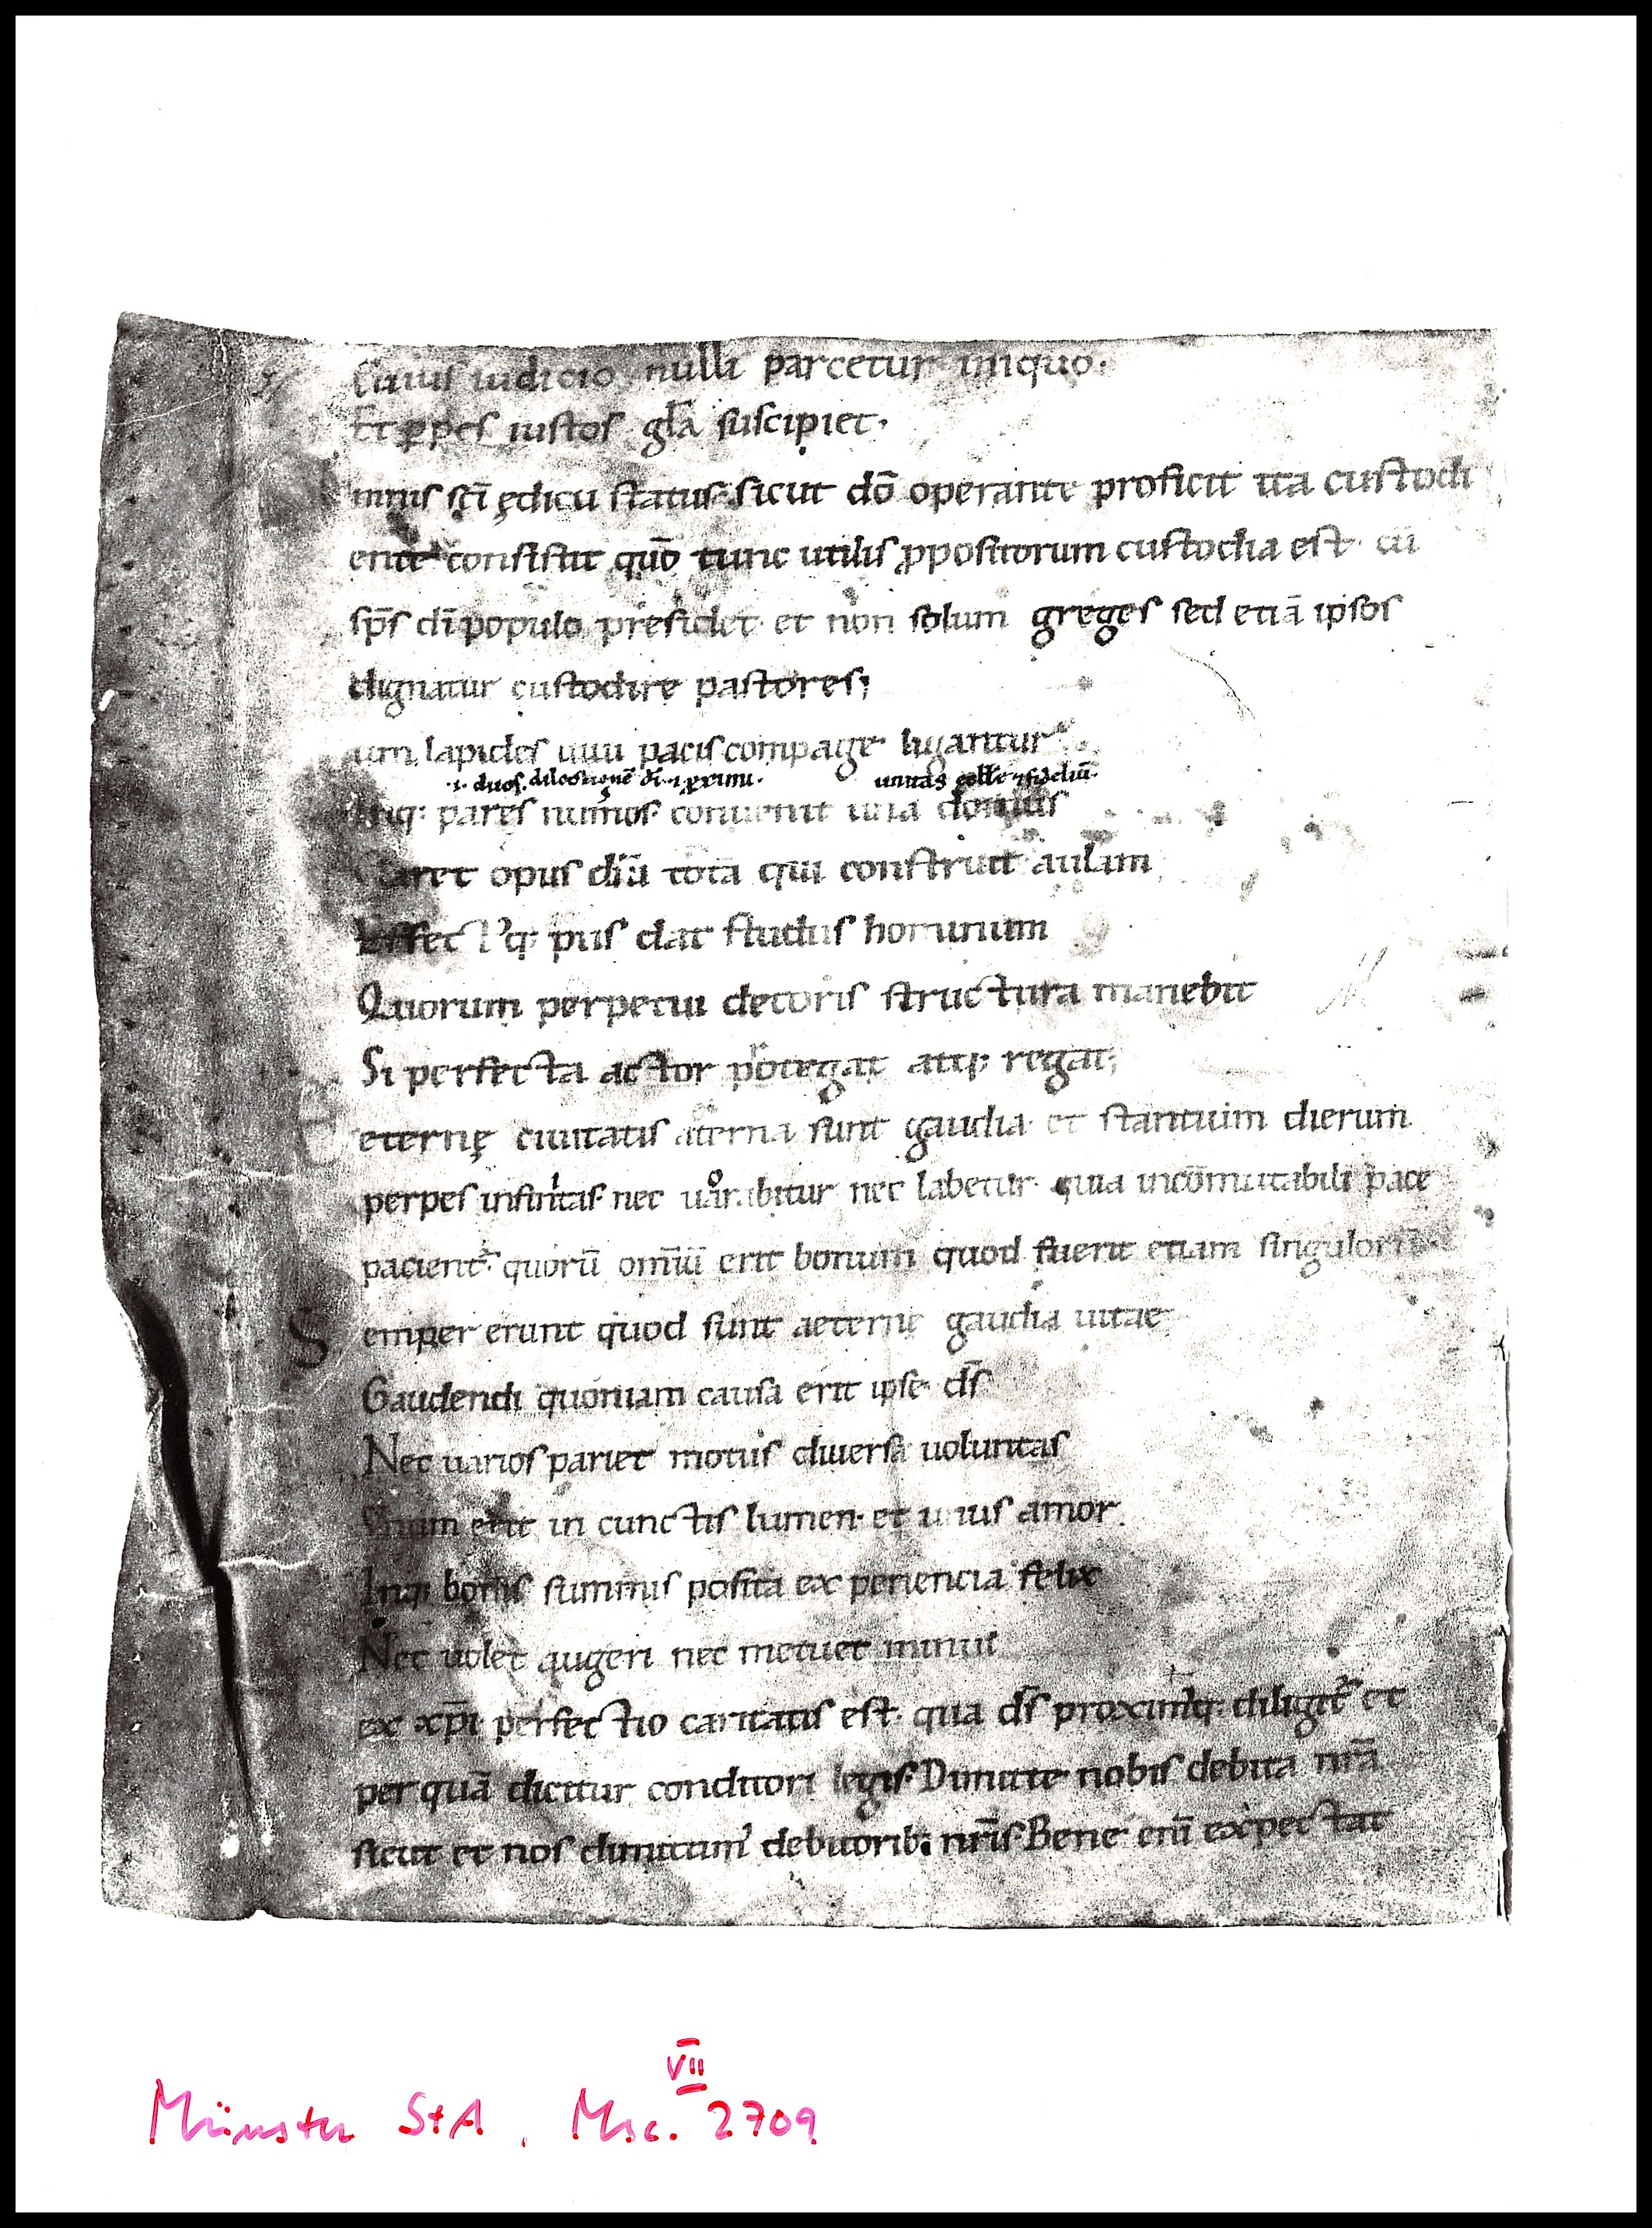 Cuius iudicio nulli parcetur iniquo.
Et ꝑpes iustos gl̄a suscipiet.
mnis sc̄i ędicii status. sicut dō operante proficit ita custodi
ente consistit quō tunc utilis p̄positorum custodia est. cū
sp̄s dī populo presidet. et non solum greges sed etiā ipsos
dignatur custodire pastores;
um lapides uiui pacis compage ligantur
.i. duos. dilectionē dī. ⁊ ꝓximi. unitas eccl̄e ⁊ fideliū.
Inq; pares num̄os. conuenit una domus
Claret opus dn̄i totā qui construit aulam
Effectūq; piis dat studiis hominum
Quorum perpetui decoris structura manebit
Si perfecta actor ꝓtegat atq; regat;
eternę ciuitatis aeterna sunt gaudia. et stantium dierum
perpes infinitas. nec uoarabitur nec labetur. quia incōmutabili pace
pacient᷑. quorū omīū erit bonum quod fuerit etiam singulorū
S emper erunt quod sunt aeternę gaudia uitae
Gaudendi quoniam causa erit ipse ds̄
Nec uarios pariet motus diuersa uoluntas
Vnum erit in cunctis lumen. et unius amor.
Inq; bonis summis posita experiencia felix
Nec uolet augeri nec metuet minui
ex xp̄i perfectio caritatis est. qua ds̄ proximꝰq; diligit᷑ et
per quā dicitur conditori legis. Dimitte nobis debita nr̄a
sicut et nos dimittimꝰ debitorib; nr̄is. Bene enī expectat
VII
Münster StA, Msc. 2709